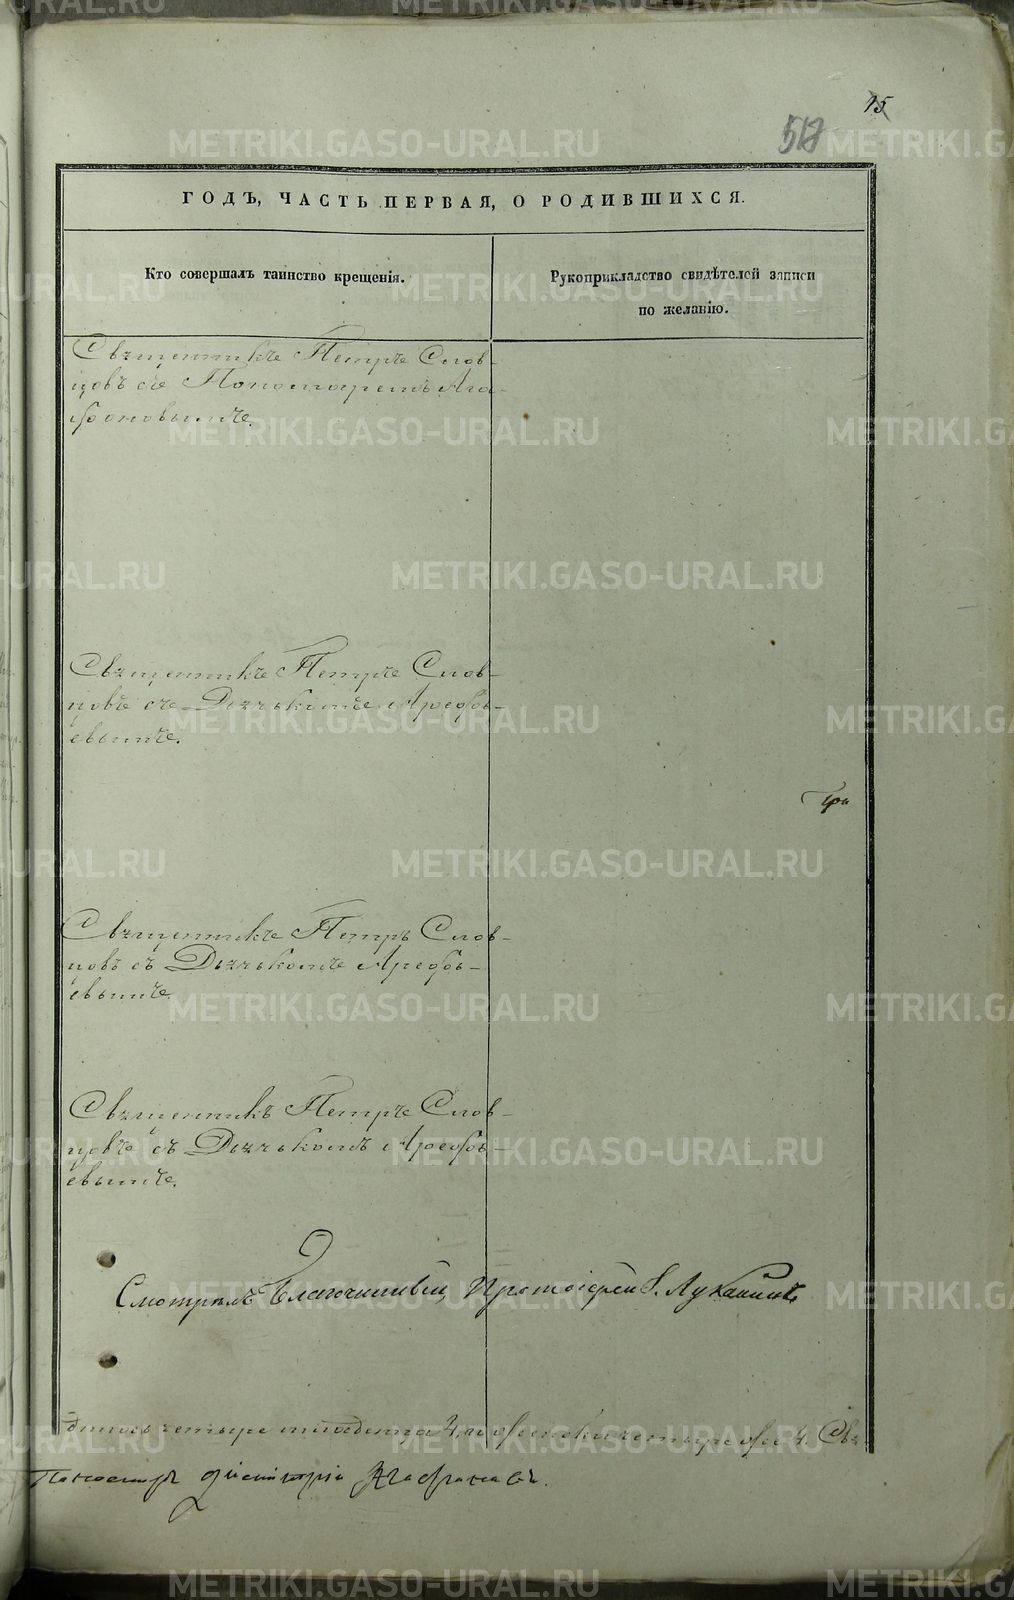 15
517
ГОДЪ, ЧАСТЬ ПЕРВАЯ, О РОДИВШИХСЯ.
Кто совершалъ таинство крещенія.
Рукоприкладство свидѣтелей записи
по желанію.
Священникъ Петръ Слов-
цовъ съ Пономаремъ Ага-
фоновымъ.
Священникъ Петръ Слов-
цовъ съ Дьячькомъ Арефь-
евымъ.
Три
Священникъ Петръ Слов-
цовъ съ Дьячькомъ Арефь-
евымъ.
Священникъ Петръ Слов-
цовъ съ Дьячькомъ Арефь-
евымъ.
Смотрѣлъ Благочинный Протоіерей І. Луканинъ
четыре младенца 4, и женска четыре 4. Свя-
Пономарь Дмитрій Агафоновъ.
METRIKI.GASO-URAL.RU